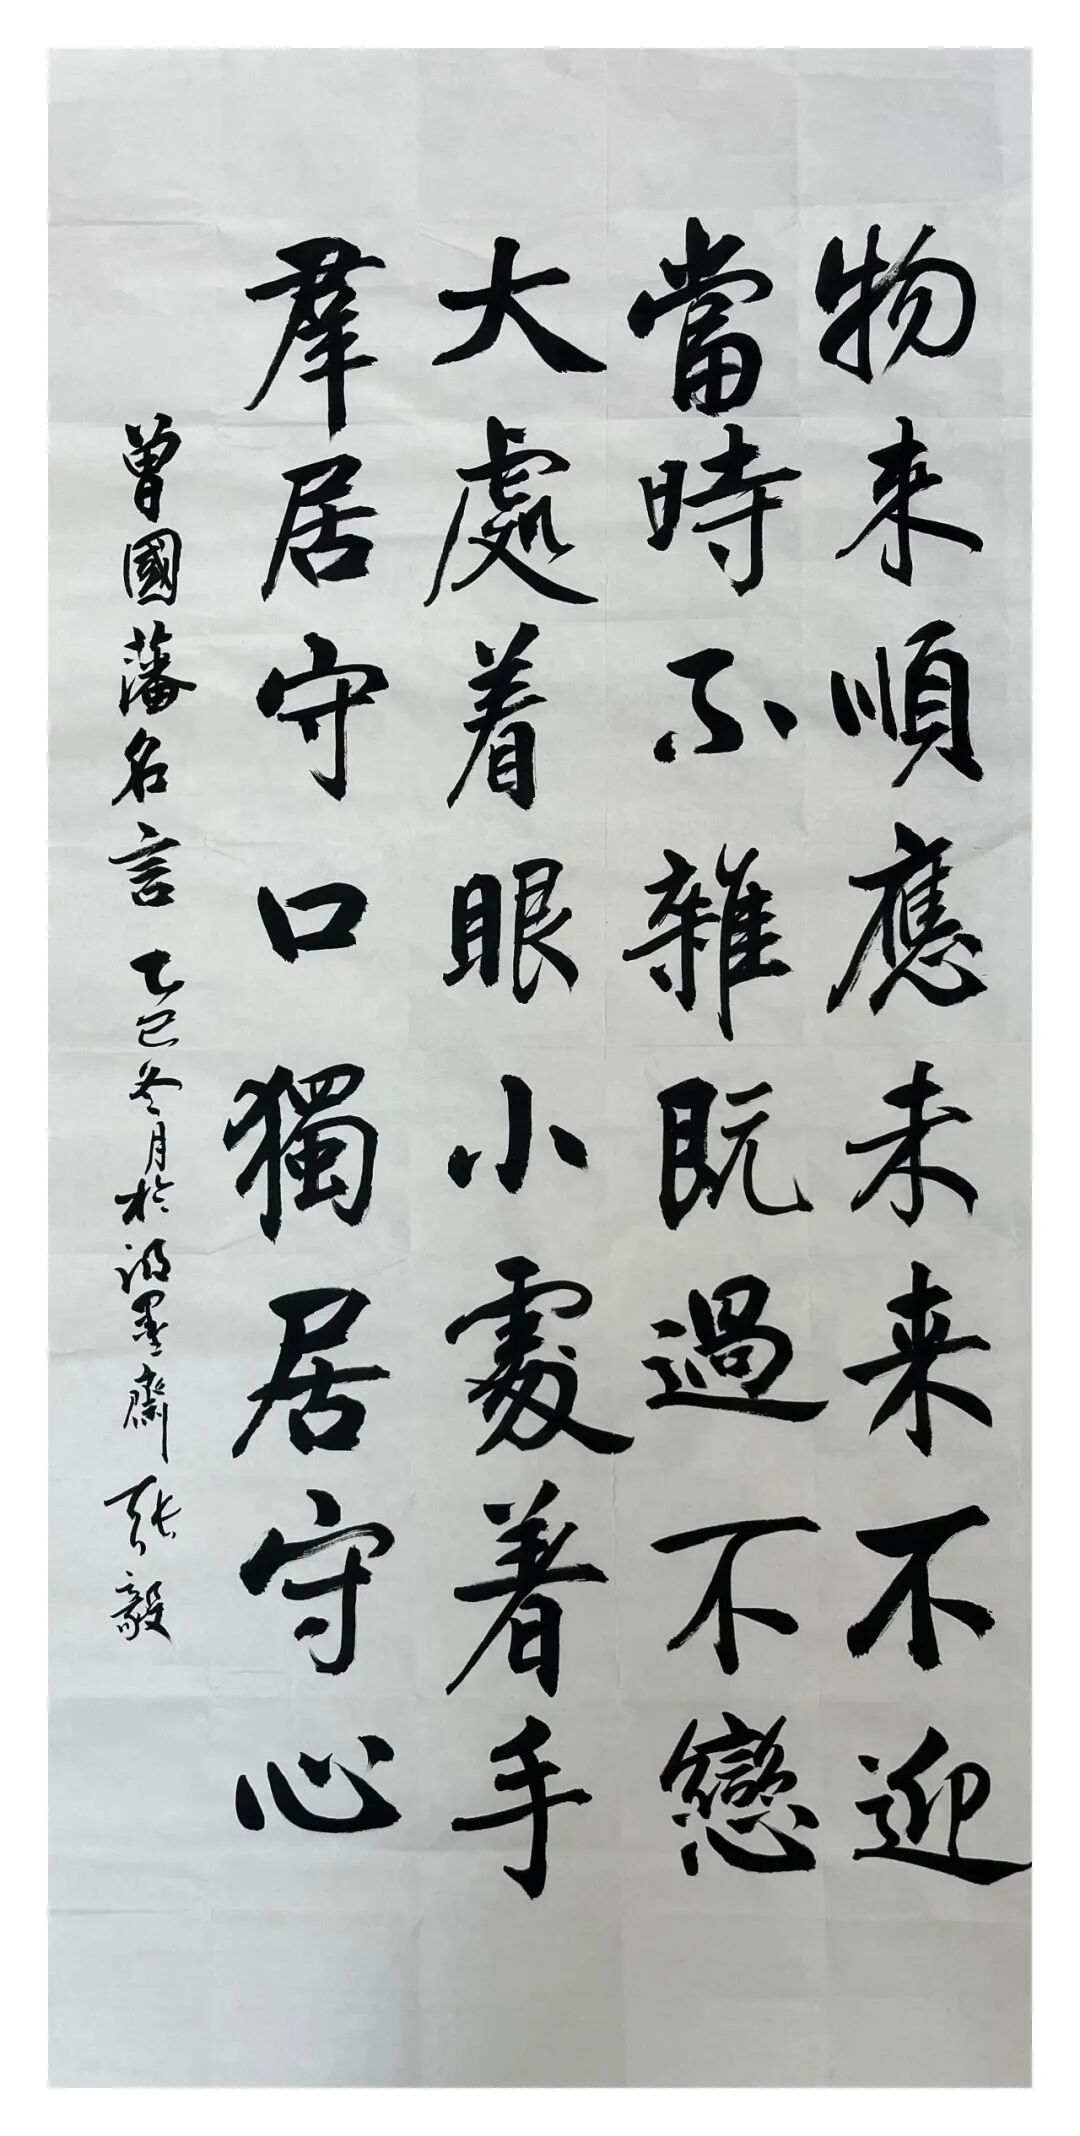 物来順應未来不迎
當時不雜既過不戀
大處着眼小處着手
羣居守口獨居守心
曾國藩名言乙巳冬月於墨齋張毅